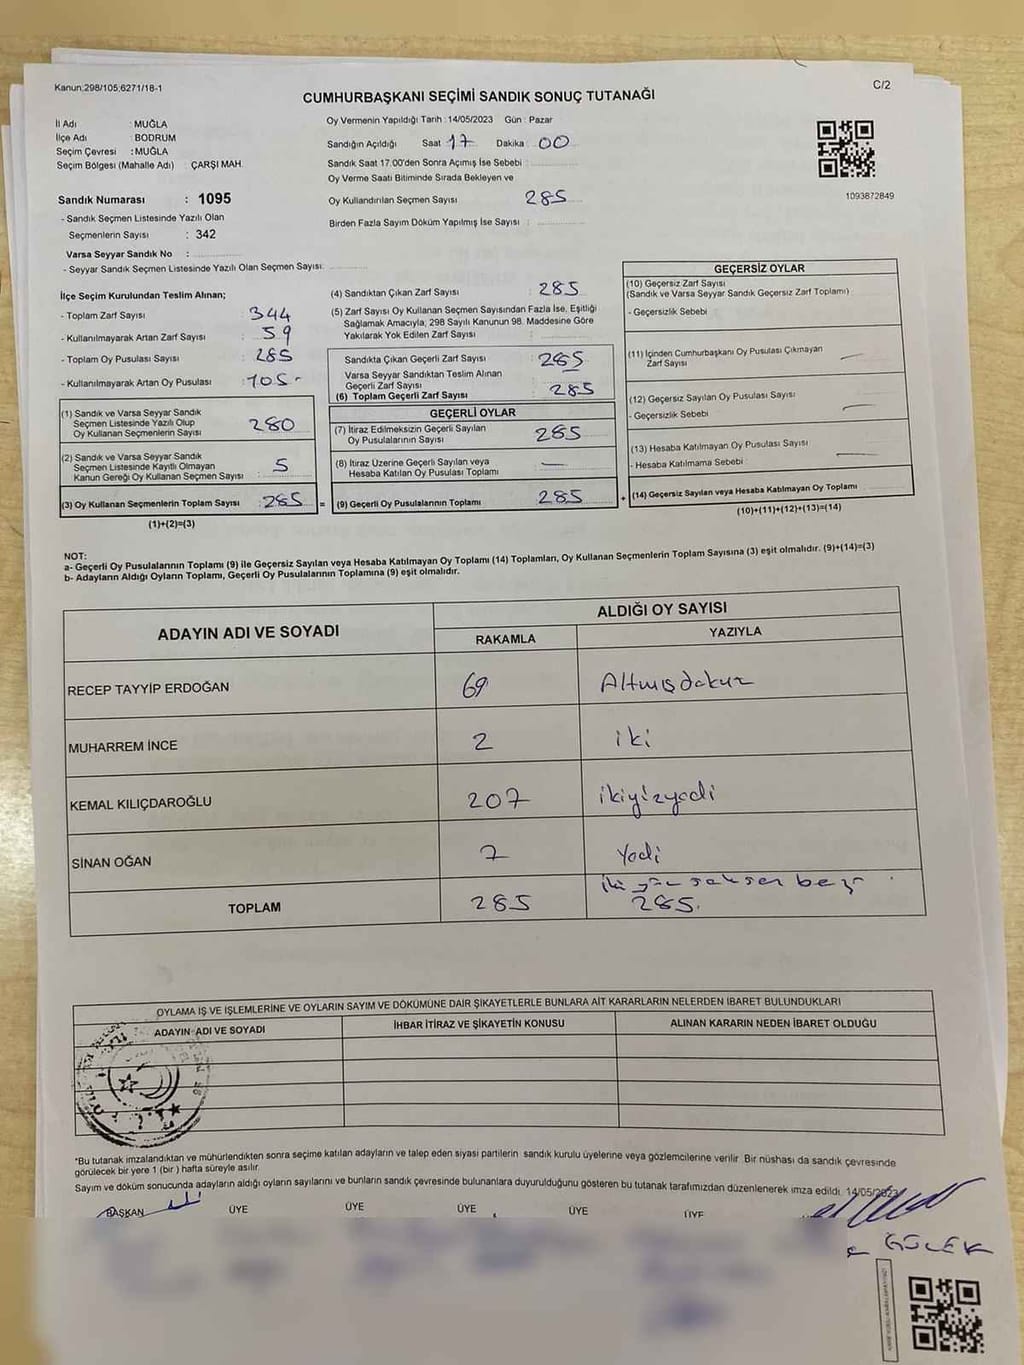 Kanun:298/105;6271/18-1
C/2
CUMHURBAŞKANI SEÇİMİ SANDIK SONUÇ TUTANAĞI
İl Adı : MUĞLA
İlçe Adı : BODRUM
Seçim Çevresi : MUĞLA
Seçim Bölgesi (Mahalle Adı) : ÇARŞI MAH.
Oy Vermenin Yapıldığı Tarih : 14/05/2023 Gün : Pazar
Sandığın Açıldığı Saat 17 Dakika 00
Sandık Saat 17.00'den Sonra Açımış İse Sebebi :
Oy Verme Saati Bitiminde Sırada Bekleyen ve
Oy Kullandırılan Seçmen Sayısı 285
Birden Fazla Sayım Döküm Yapılmış İse Sayısı :
1093872849
Sandık Numarası : 1095
- Sandık Seçmen Listesinde Yazılı Olan
Seçmenlerin Sayısı : 342
Varsa Seyyar Sandık No :
- Seyyar Sandık Seçmen Listesinde Yazılı Olan Seçmen Sayısı:
İlçe Seçim Kurulundan Teslim Alınan;
- Toplam Zarf Sayısı : 344
- Kullanılmayarak Artan Zarf Sayısı : 59
- Toplam Oy Pusulası Sayısı : 285
- Kullanılmayarak Artan Oy Pusulası : 105-
(1) Sandık ve Varsa Seyyar Sandık
Seçmen Listesinde Yazılı Olup
Oy Kullanan Seçmenlerin Sayısı 280
(2) Sandık ve Varsa Seyyar Sandık
Seçmen Listesinde Kayıtlı Olmayan
Kanun Gereği Oy Kullanan Seçmen Sayısı 5
(3) Oy Kullanan Seçmenlerin Toplam Sayısı 285 =
(1)+(2)=(3)
(4) Sandıktan Çıkan Zarf Sayısı : 285
(5) Zarf Sayısı Oy Kullanan Seçmen Sayısından Fazla İse, Eşitliği
Sağlamak Amacıyla, 298 Sayılı Kanunun 98. Maddesine Göre
Yakılarak Yok Edilen Zarf Sayısı :
Sandıkta Çıkan Geçerli Zarf Sayısı : 285
Varsa Seyyar Sandıktan Teslim Alınan
Geçerli Zarf Sayısı
(6) Toplam Geçerli Zarf Sayısı : 285
GEÇERLİ OYLAR
(7) İtiraz Edilmeksizin Geçerli Sayılan
Oy Pusulalarının Sayısı : 285
(8) İtiraz Üzerine Geçerli Sayılan veya
Hesaba Katılan Oy Pusulası Toplamı : —
(9) Geçerli Oy Pusulalarının Toplamı : 285 +
GEÇERSİZ OYLAR
(10) Geçersiz Zarf Sayısı
(Sandık ve Varsa Seyyar Sandık Geçersiz Zarf Toplamı)
- Geçersizlik Sebebi
(11) İçinden Cumhurbaşkanı Oy Pusulası Çıkmayan
Zarf Sayısı —
(12) Geçersiz Sayılan Oy Pusulası Sayısı
- Geçersizlik Sebebi —
(13) Hesaba Katılmayan Oy Pusulası Sayısı
- Hesaba Katılmama Sebebi —
(14) Geçersiz Sayılan veya Hesaba Katılmayan Oy Toplamı
(10)+(11)+(12)+(13)=(14)
NOT:
a- Geçerli Oy Pusulalarının Toplamı (9) ile Geçersiz Sayılan veya Hesaba Katılmayan Oy Toplamı (14) Toplamları, Oy Kullanan Seçmenlerin Toplam Sayısına (3) eşit olmalıdır. (9)+(14)=(3)
b- Adayların Aldığı Oyların Toplamı, Geçerli Oy Pusulalarının Toplamına (9) eşit olmalıdır.
ADAYIN ADI VE SOYADI
ALDIĞI OY SAYISI
RAKAMLA YAZIYLA
RECEP TAYYİP ERDOĞAN 69 Altmışdokuz
MUHARREM İNCE 2 iki
KEMAL KILIÇDAROĞLU 207 ikiyüzyedi
SİNAN OĞAN 7 Yedi
iki yüz seksen beş
TOPLAM 285 285.
OYLAMA İŞ VE İŞLEMLERİNE VE OYLARIN SAYIM VE DÖKÜMÜNE DAİR ŞİKAYETLERLE BUNLARA AİT KARARLARIN NELERDEN İBARET BULUNDUKLARI
ADAYIN ADI VE SOYADI İHBAR İTİRAZ VE ŞİKAYETİN KONUSU ALINAN KARARIN NEDEN İBARET OLDUĞU
*Bu tutanak imzalandıktan ve mühürlendikten sonra seçime katılan adayların ve talep eden siyasi partilerin sandık kurulu üyelerine veya gözlemcilerine verilir. Bir nüshası da sandık çevresinde
görülecek bir yere 1 (bir ) hafta süreyle asılır.
Sayım ve döküm sonucunda adayların aldığı oyların sayılarını ve bunların sandık çevresinde bulunanlara duyurulduğunu gösteren bu tutanak tarafımızdan düzenlenerek imza edildi. 14/05/2023
BAŞKAN ÜYE ÜYE ÜYE ÜYE ÜYE
GÜLEK